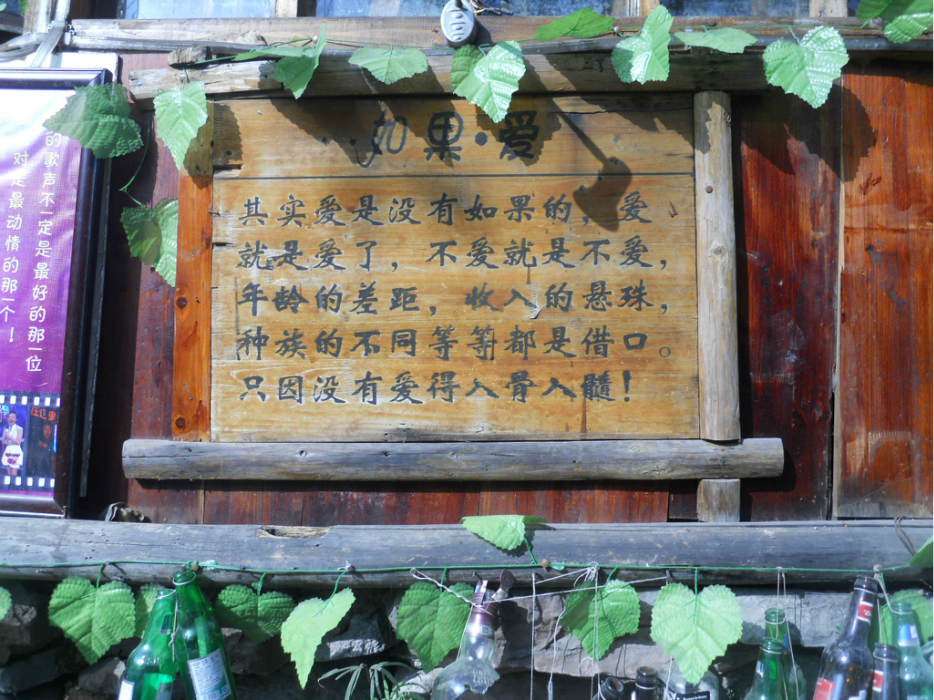 如果·爱
其实爱是没有如果的，爱
就是爱了，不爱就是不爱，
年龄的差距，收入的悬殊，
种族的不同等等都是借口。
只因没有爱得入骨入髓！
的歌声不一定是最好的那一位
对是最动情的那一个！